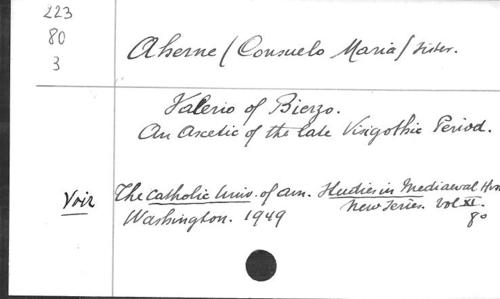 223
80
3
Aherne (Consuelo Maria) sister.
Valerio of Bierzo.
An Ascetic of the late Visigothic Period.
Voir
The Catholic Univ. of Am. Studies in Mediaeval
New series. Vol XI.
Washington. 1949
80